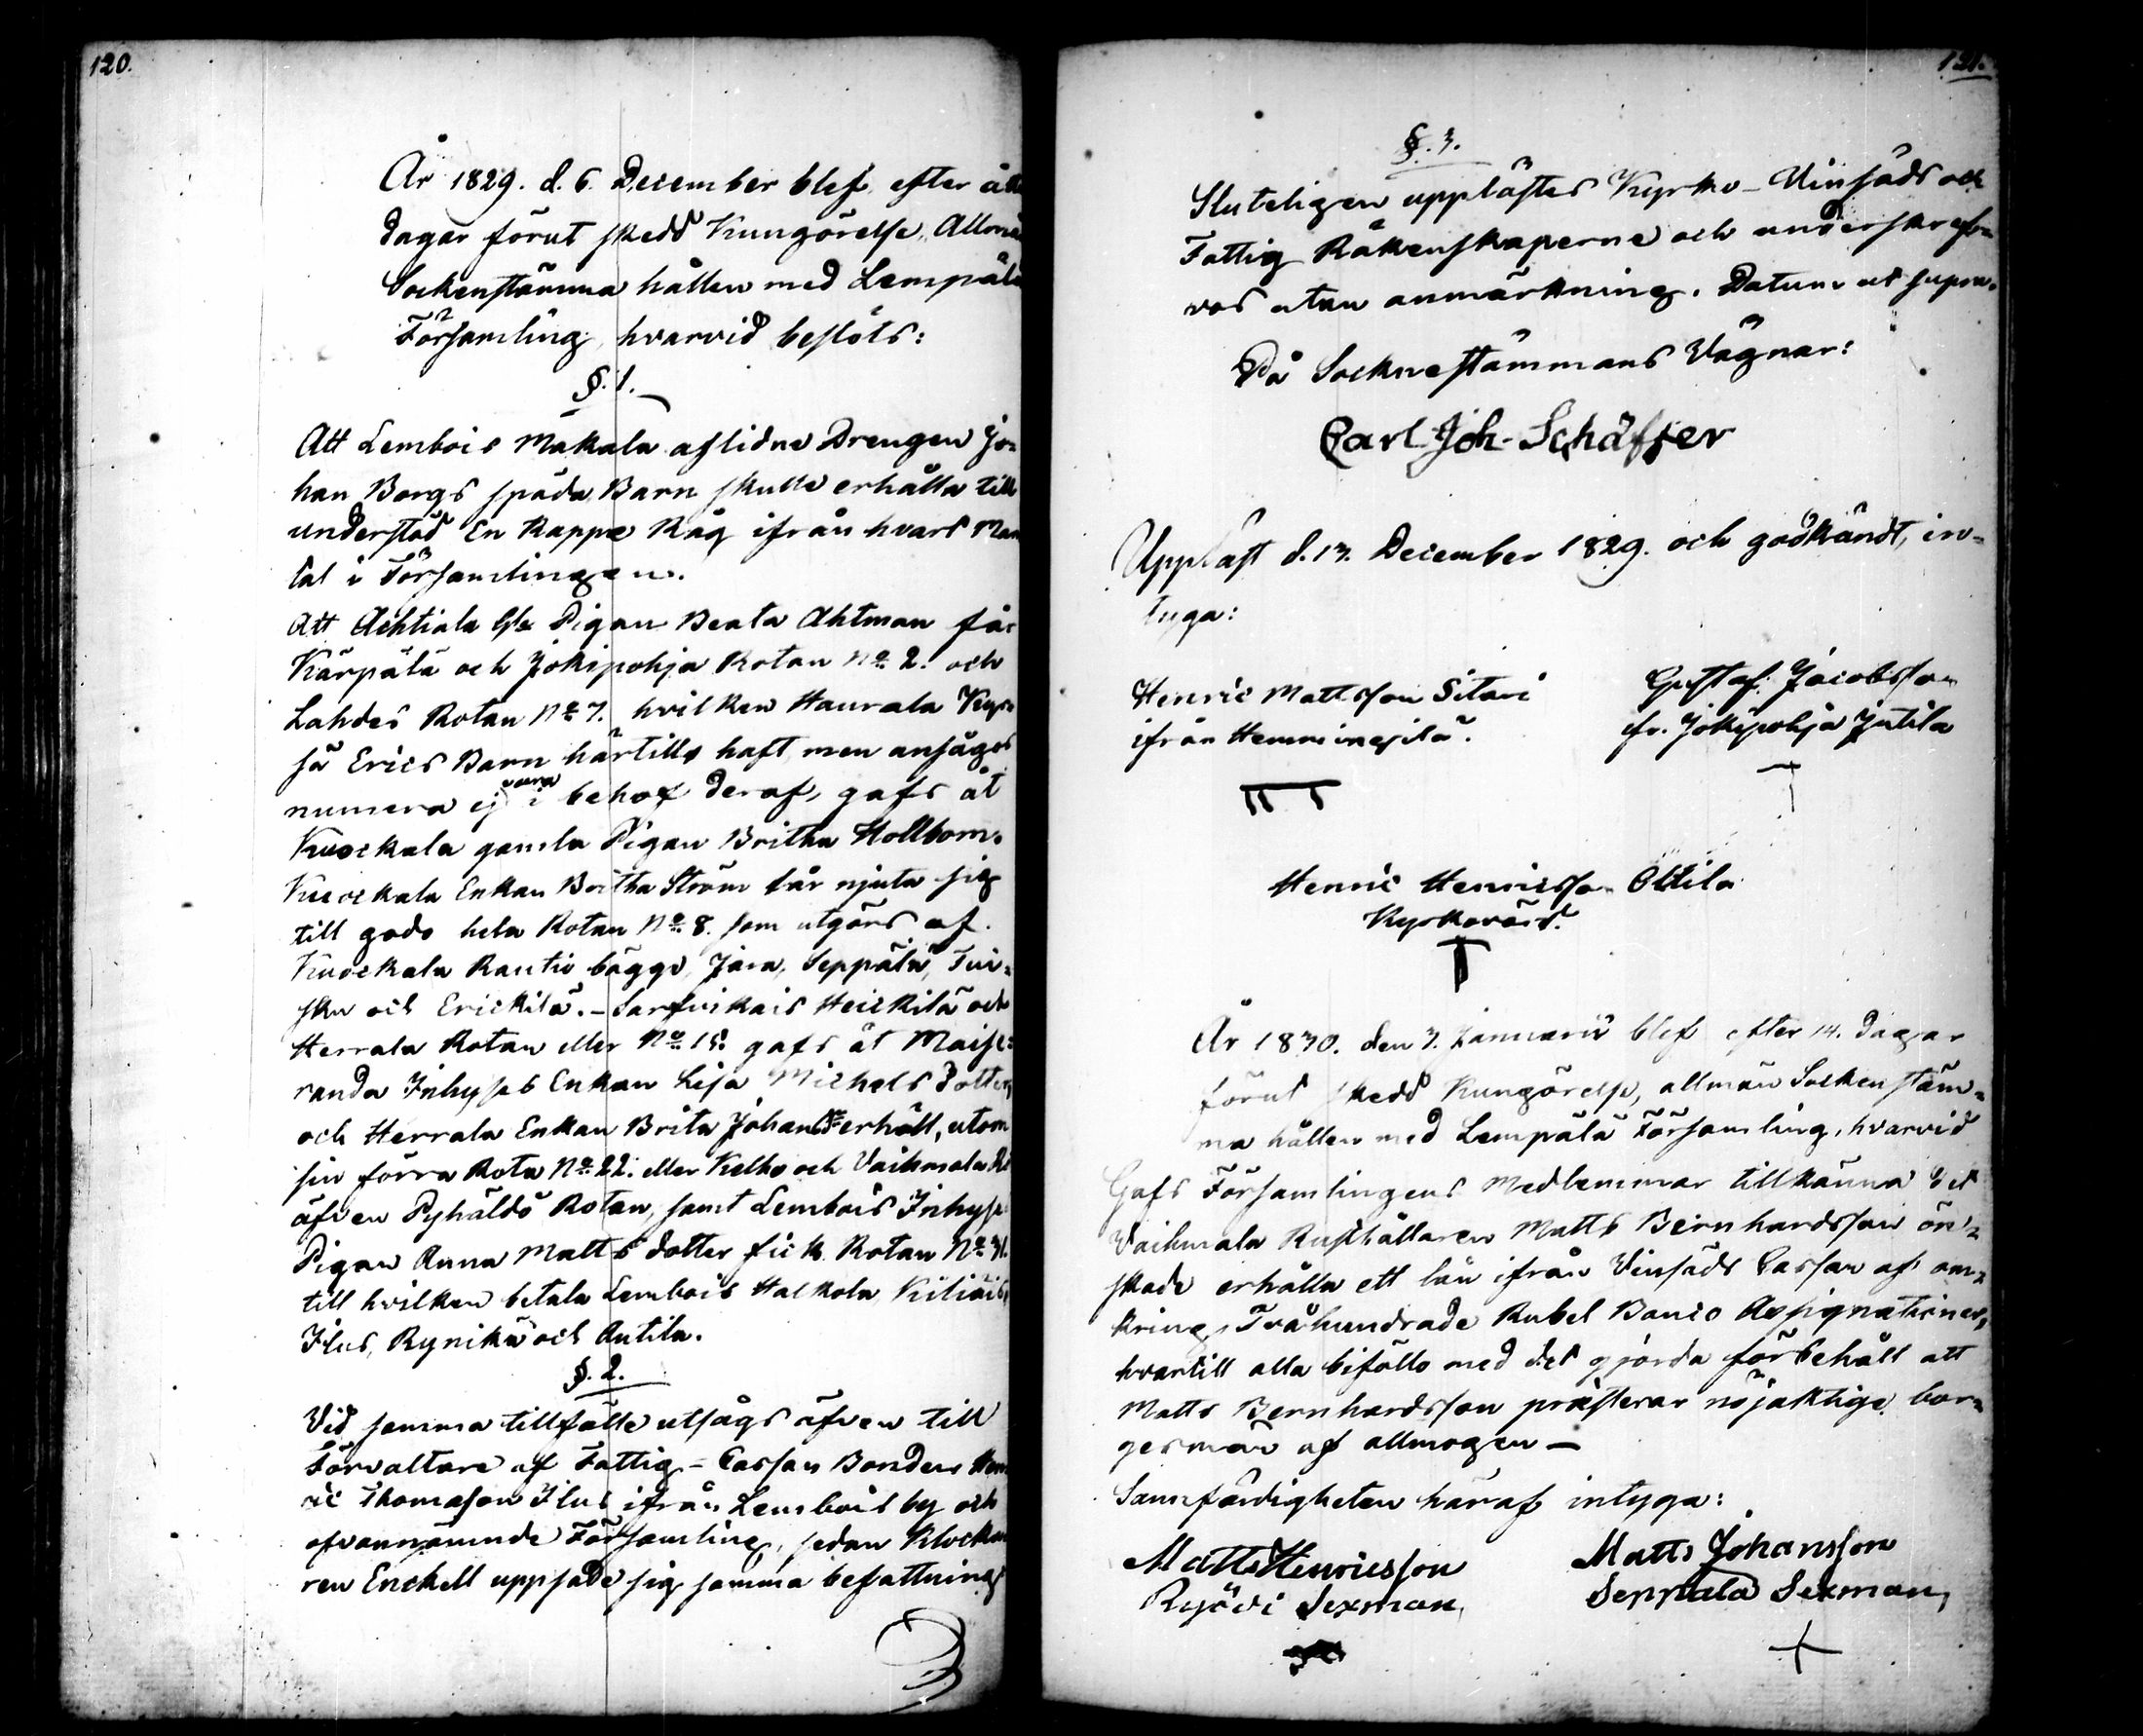 120.
År 1829. d. 6. December blef, efter åtta
dagar förut skedd Kungörelse, Allmän
Sockenstämma hållen med Lempälä
Församling, hvarvid beslöts:
§. 1.
Att Lembois Makala aflidne Drengen Jo-
han Borgs späda Barn skulle erhålla till
understöd En Kappe Råg ifrån hvart Man
tal i Församlingen.
Att Achtiala Pigan Beata Ahtman får
Kärpälä och Jokipohja Rotan No 2. och
Lahdes Rotan No 7. hvilken Haurala
så Erics Barn härtills haft, men ansågos
numera ej vara i behof deraf, gafs åt
Kuockala gamla Pigan Britha Hollbom.
Kuockala Enkan Britha Ström får njuta sig
till godo hela Rotan No 8. som utgörs af
Kuockala Rautio bägge, Jära, Seppälä, Tui-
sku och Erickilä. - Sarfvikais Heickilä och
Herrala Rotan eller No 15. gafs åt Maise-
randa Inhyses Enkan Lisa Michels Dotter,
och Herrala Enkan Brita Johans Dr erhöll, utom
sin förra Rota No 22. eller Kelho och Vaihmala
äfven Pyhäldö Rotan, samt Lembois Inhyses
Pigan Anna Matts dotter fick Rotan No 31.
till hvilken betala Lembois Halkola, Kiliäis,
Ilus, Rynikä och Antila.
§. 2.
Vid samma tillfälle utsågs äfven till
Förvaltare af Fattig-Cassan Bonden Hen
ric Thomason Ilus ifrån Lembois by och
ofvannämnde Församling, sedan Klocka
ren Enckell uppsade sig samma befattning
121.
§. 3.
Sluteligen upplästes Kyrko- Vinsäds och
Fattig Räkenskaperne och underskrefs-
vos utan anmärkning. Datum ut supra.
På Socknestämmans Vägnar:
Carl Joh. Schäffer
Uppläst d. 13. December 1829. och godkändt, in-
tyga:
Henric Mattsson Sitari
ifrån Hemmingilä.
Gustaf Jacobsson
fr. Jokipohja Jutila
Henric Henricsson Ollila
Kyrkovärd.
År 1830. den 3. Januarii blef efter 14. dagar
förut skedd Kungörelse, allmän Sockenstäm-
ma hållen med Lempälä Församling, hvarvid
Gafs Församlingens Medlemmar tillkänna det
Vaihmala Rusthållaren Matts Bernhardsson ön-
skade erhålla ett lån ifrån Vinsäds Cassan af om-
kring Tvåhundrade Rubel Banco Assignationer,
hvartill alla biföllo med det gjorda förbehåll att
Matts Bernhardsson præsterar nöjaktige bor-
gesmän af allmogen -
Sanfärdigheten häraf intyga:
Matts Henricsson
Sexman,
Matts Johansson
Seppälä Sexman,